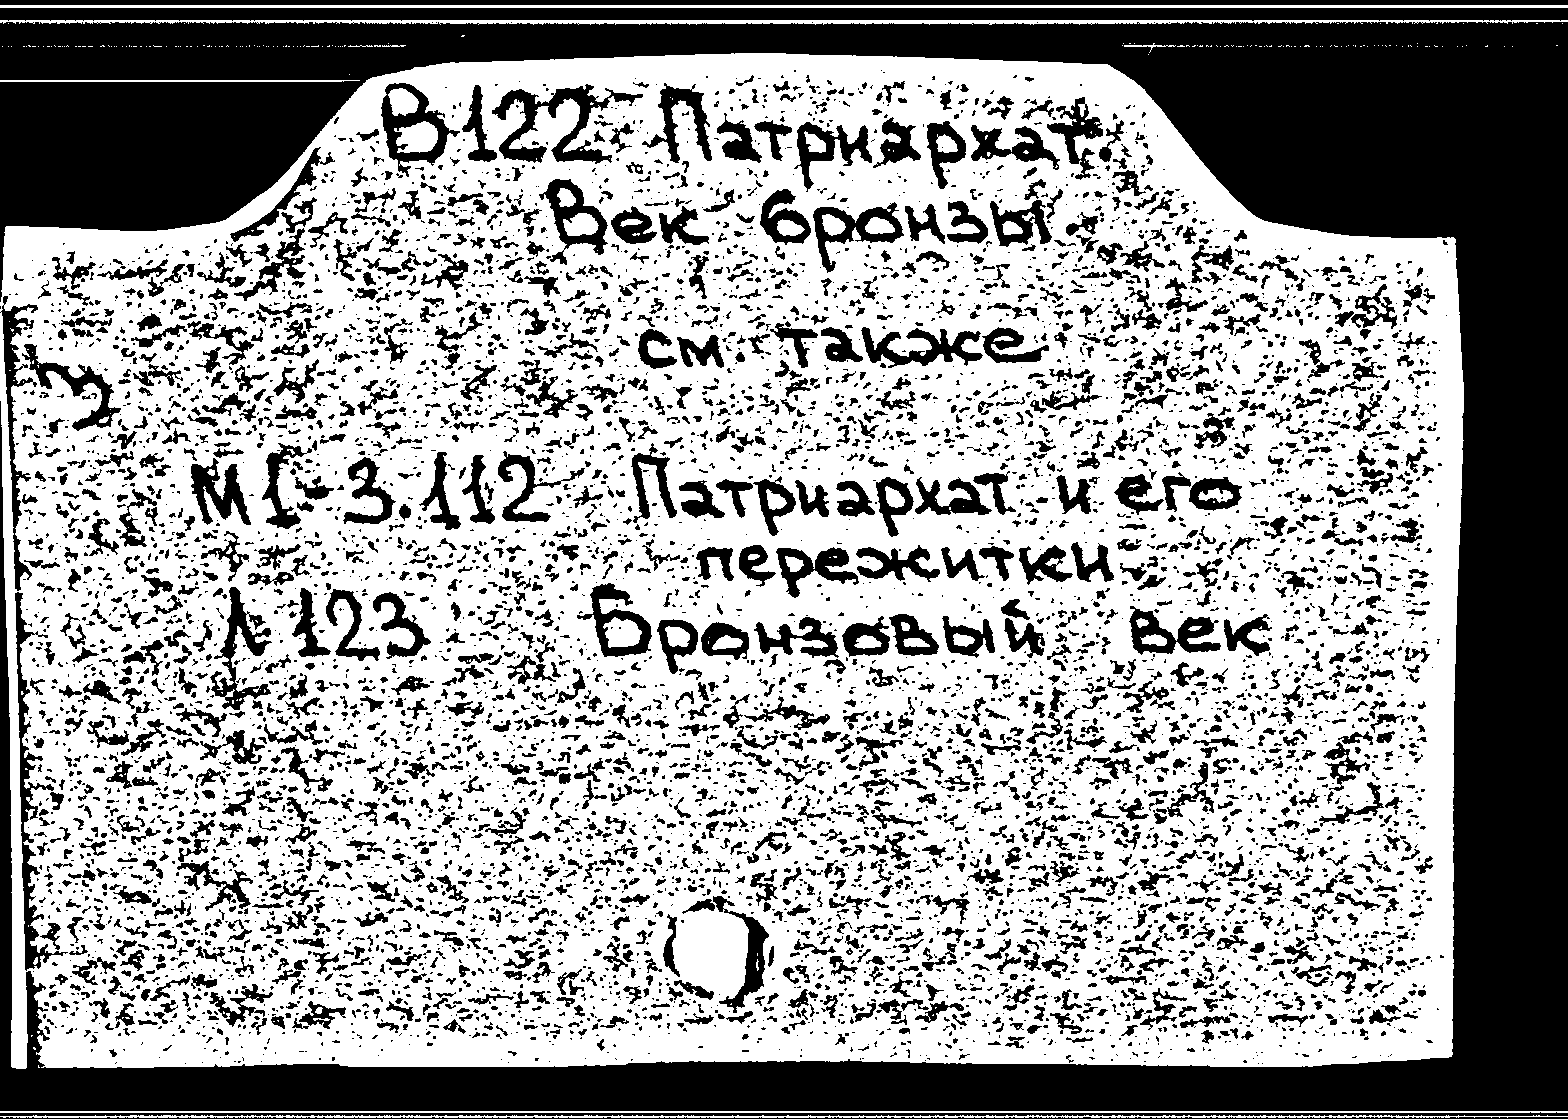 В122 Патриархат.
Век бронзы.
см. также
М1-3.112 Патриархат и его
пережитки
Л123 Бронзовый век